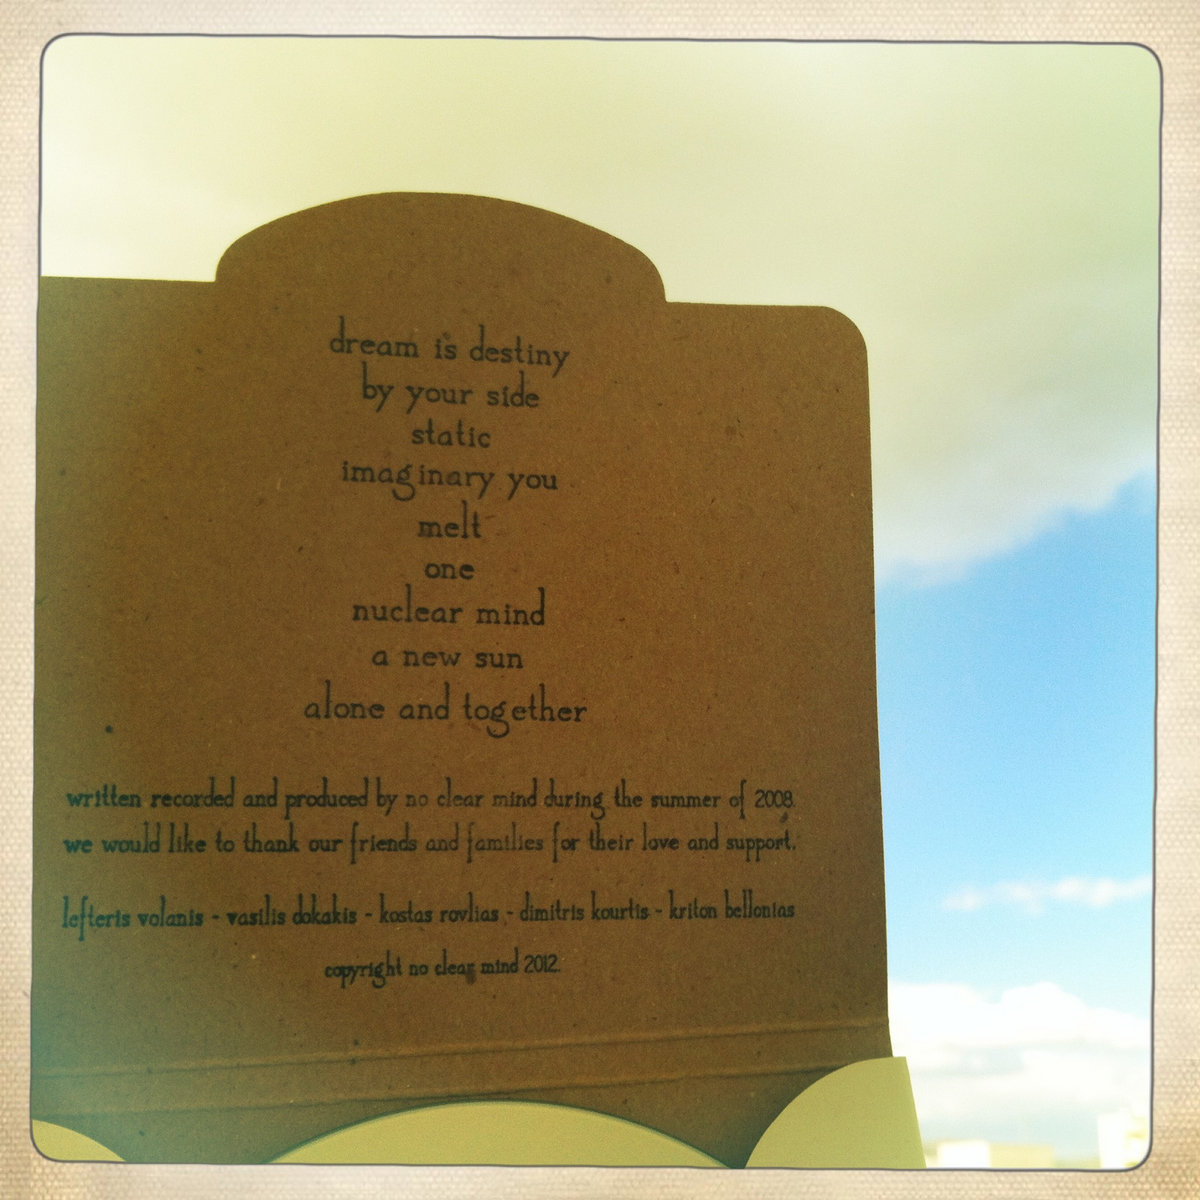 dream is destiny
by your side
static
imaginary you
melt
one
nuclear mind
a new sun
alone and together
written recorded and produced by no clear mind during the summer of 2008.
we would like to thank our friends and families for their love and support.
lefteris volanis - vasilis dokakis - kostas rovlias - dimitris kourtis - kriton bellonias
copyright no clear mind 2012.